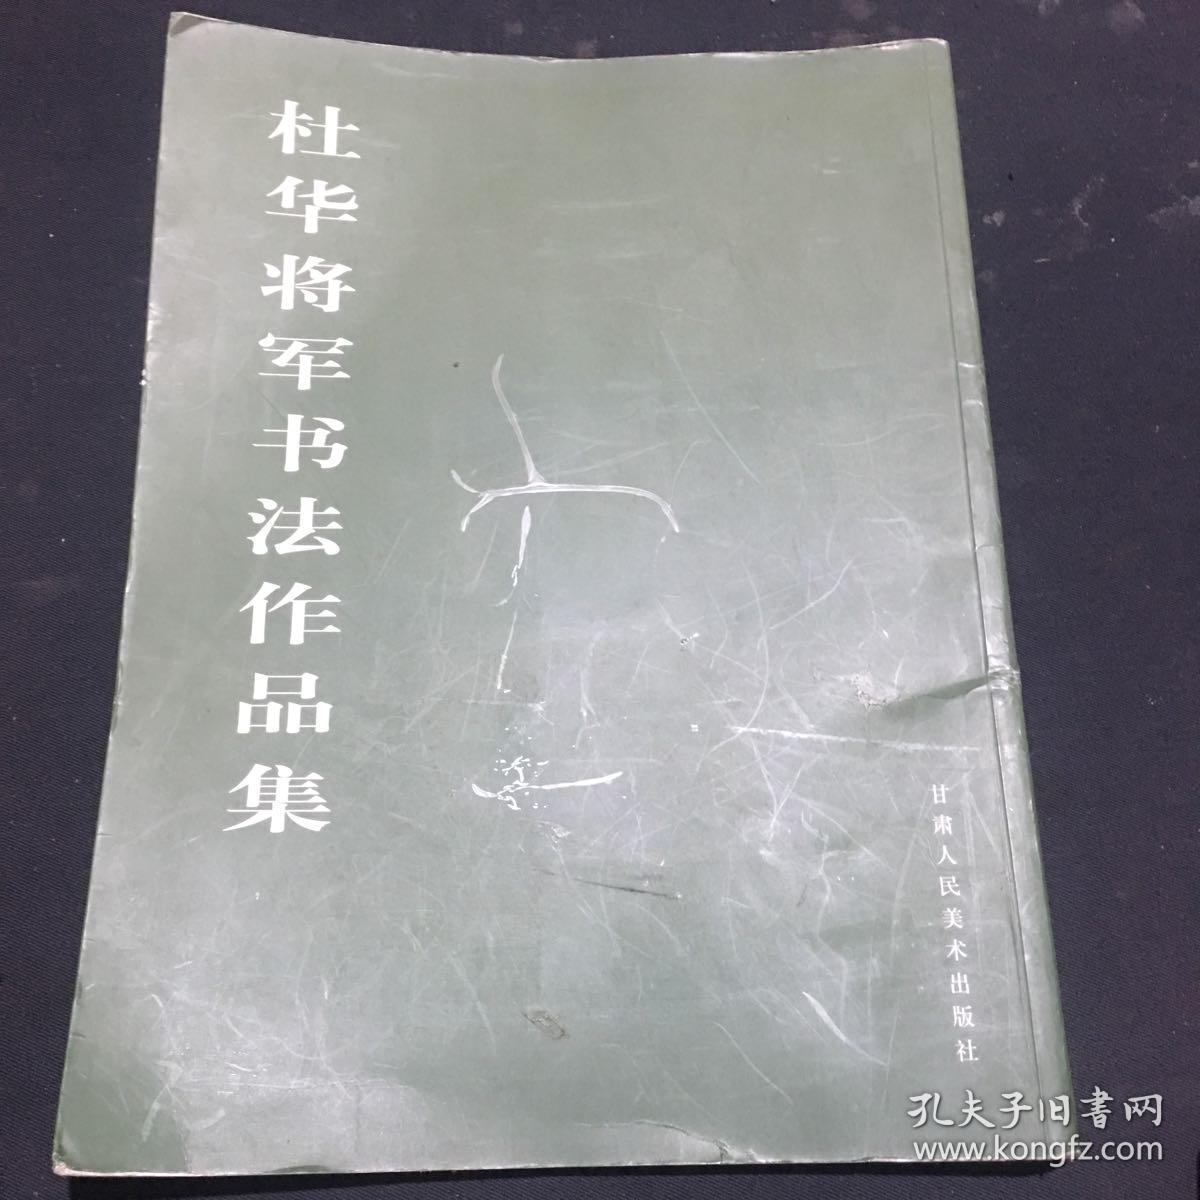 杜华将军书法作品集
甘肃人民美术出版社
孔夫子旧書网
www.kongfz.com